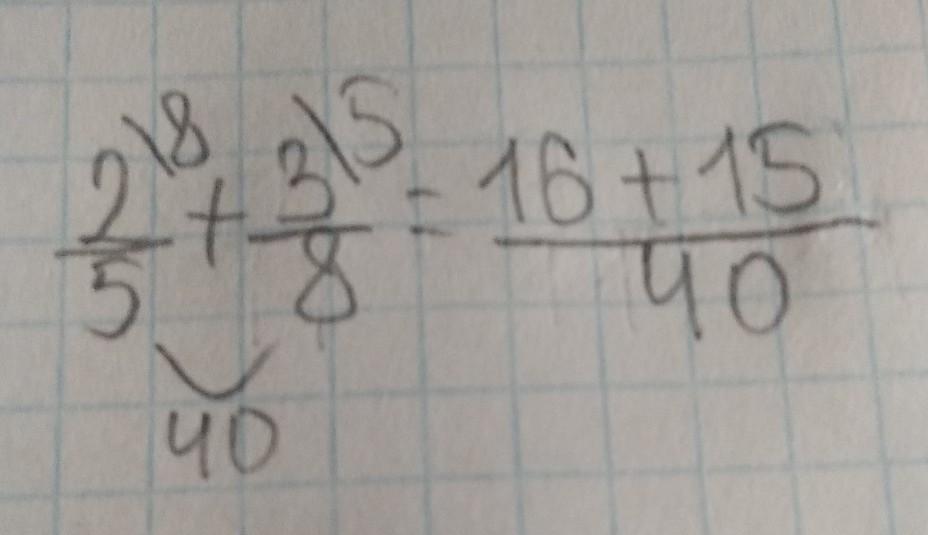 2\8/5 + 3\5/8 = 16+15/40
40